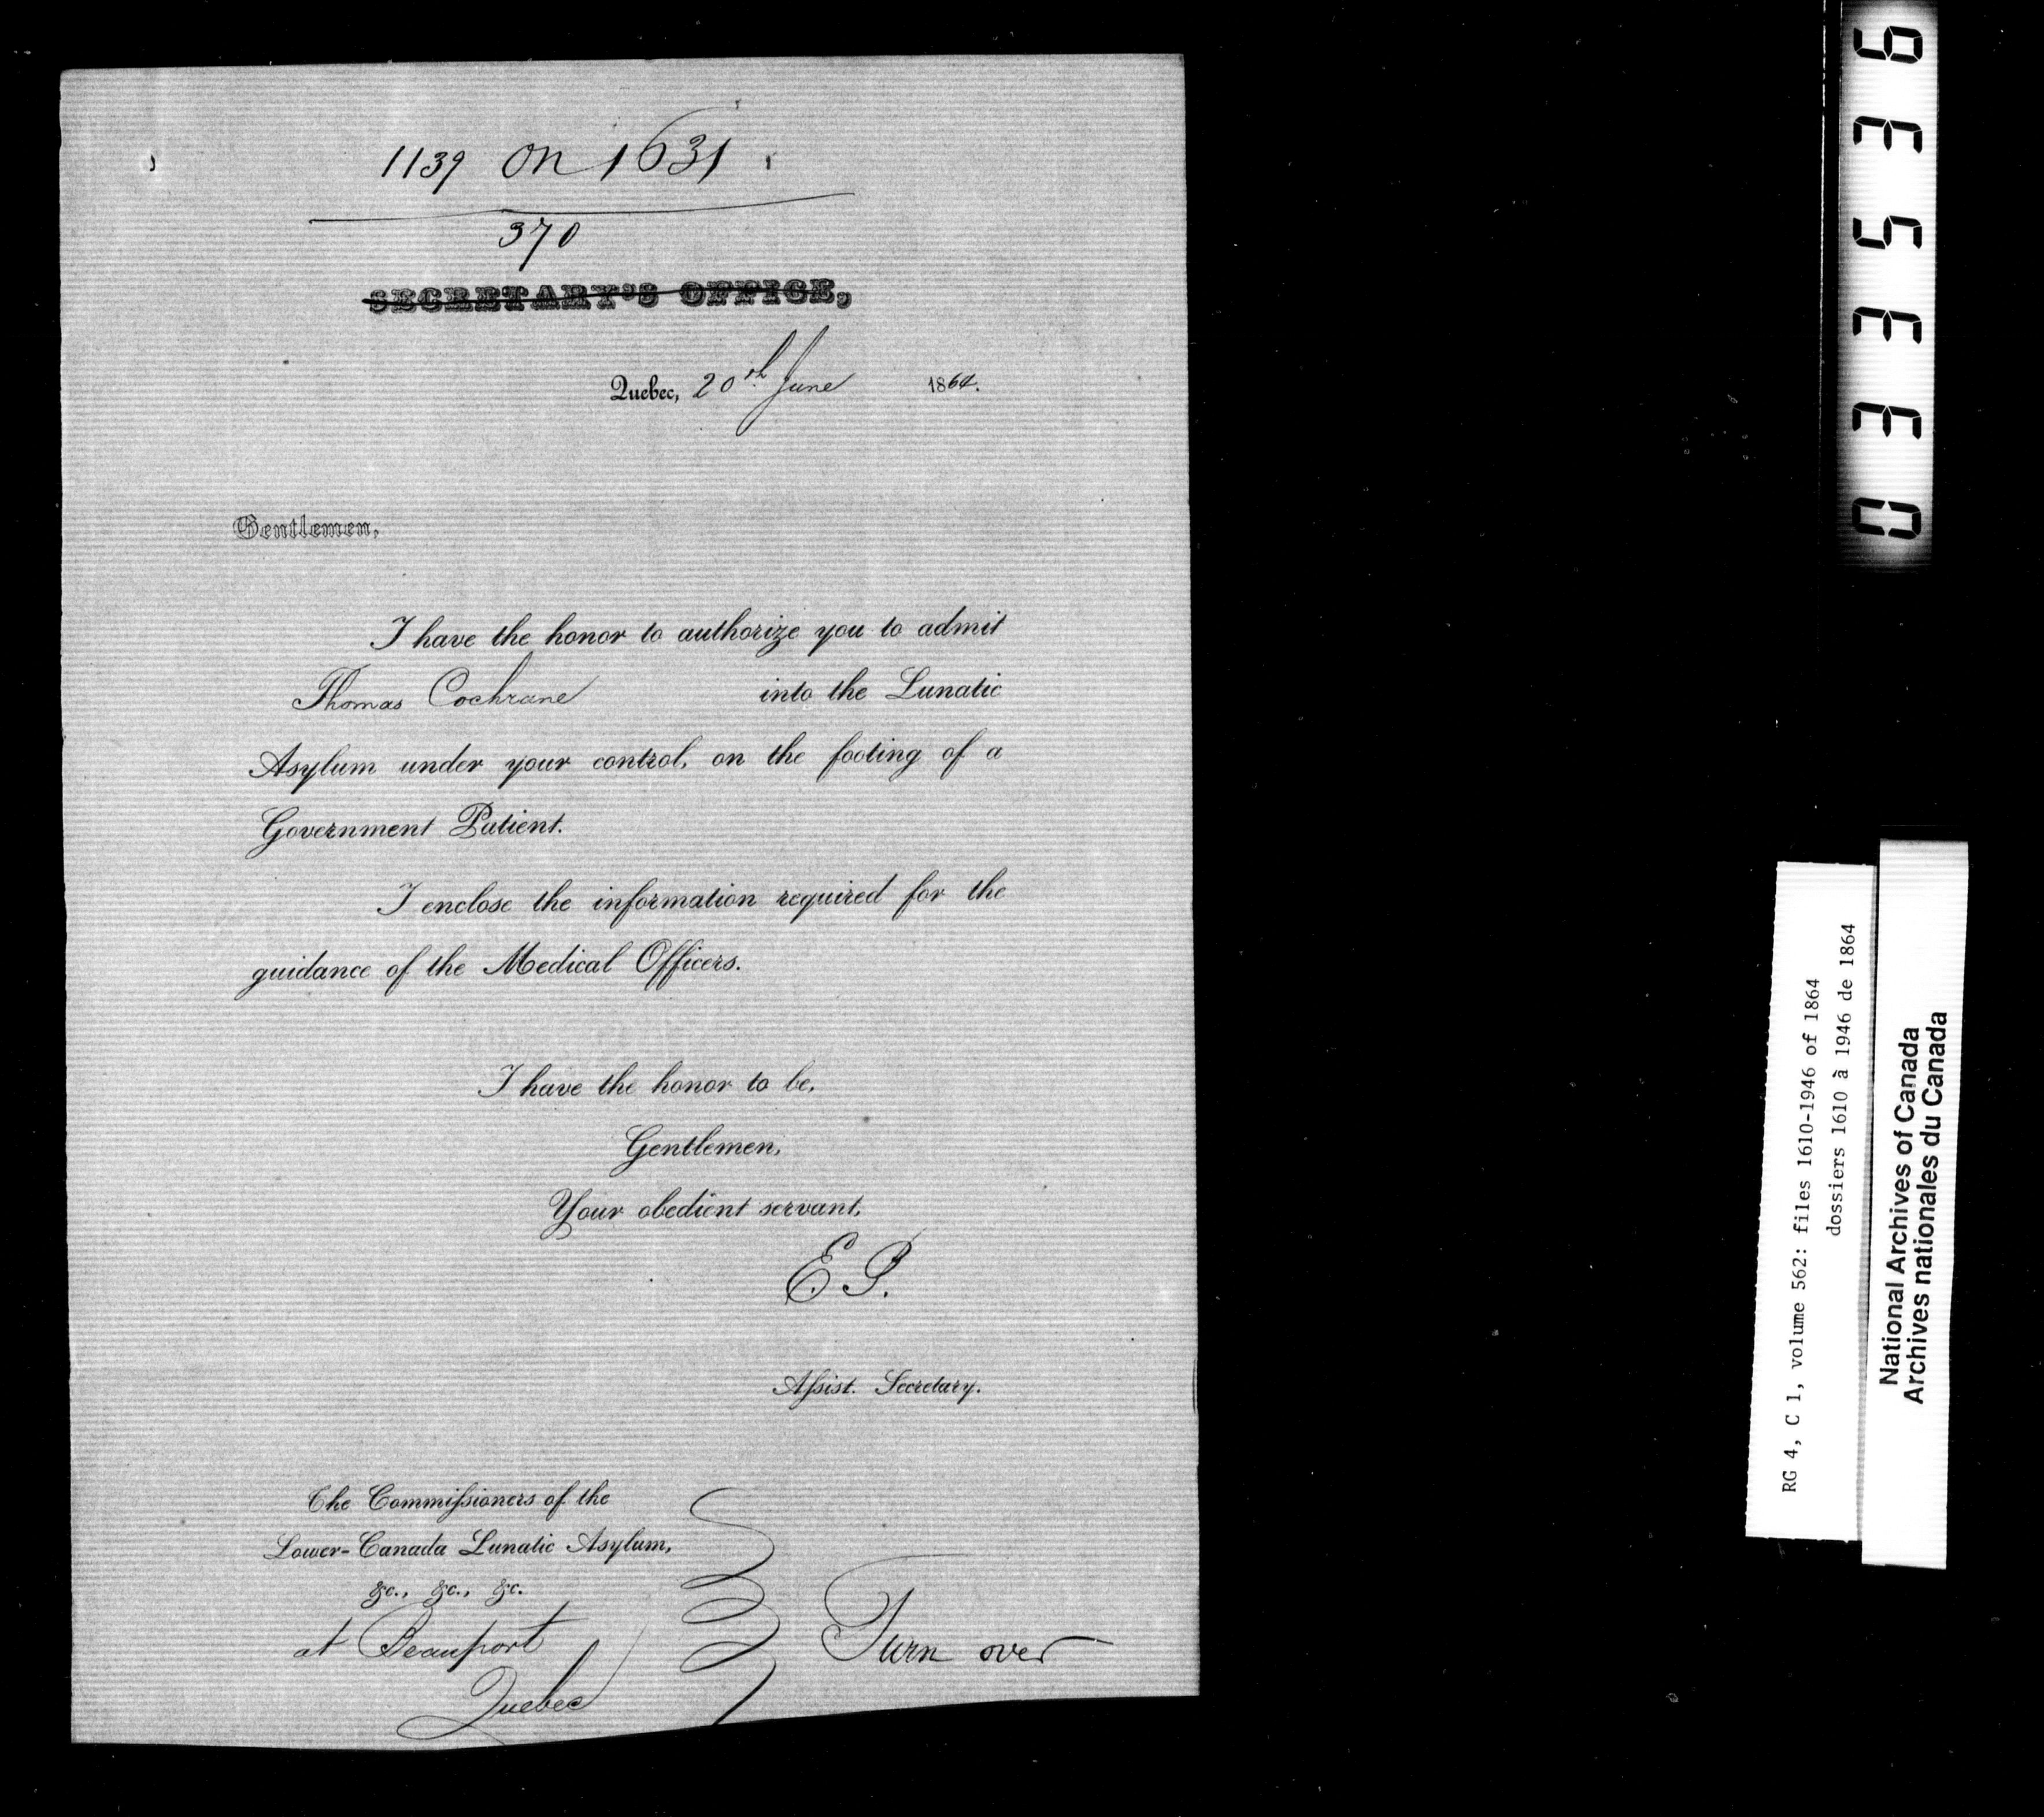 1139 on 1631
370
SECRETARY'S OFFICE,
Quebec, 20th June 1864.
Gentlemen,
I have the honor to authorize you to admit
Thomas Cochrane into the Lunatic
Asylum under your control, on the footing of a
Government Patient.
I enclose the information required for the
guidance of the Medical Officers.
I have the honor to be,
Gentlemen,
Your obedient servant,
E P.
Aſsist. Secretary.
The Commiſsioners of the
Lower-Canada Lunatic Asylum,
&c., &c., &c.
at Beauport
Quebec
Turn over
033536
RG 4, C 1, volume 562: files 1610-1946 of 1864
dossiers 1610 à 1946 de 1864
National Archives of Canada
Archives nationales du Canada